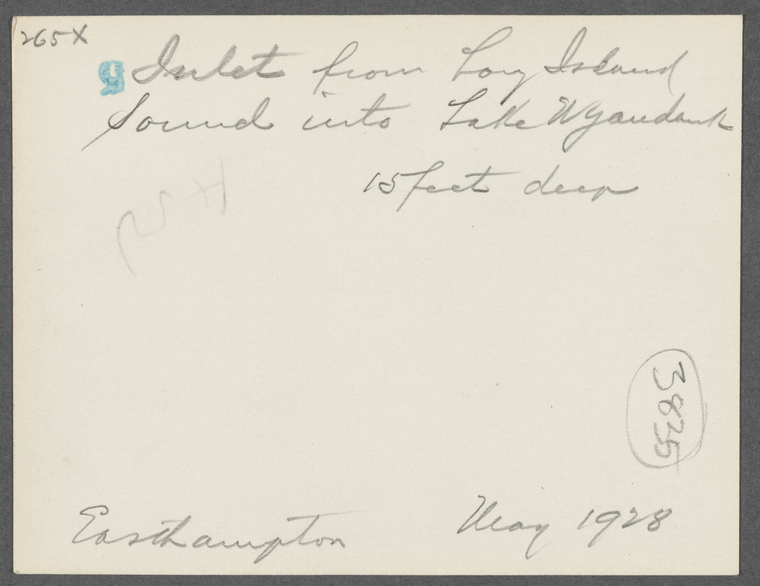 265X
5 Inlet from Long Island
Sound into Lake Wyandank
15 feet deep
3835
Easthampton May 1928